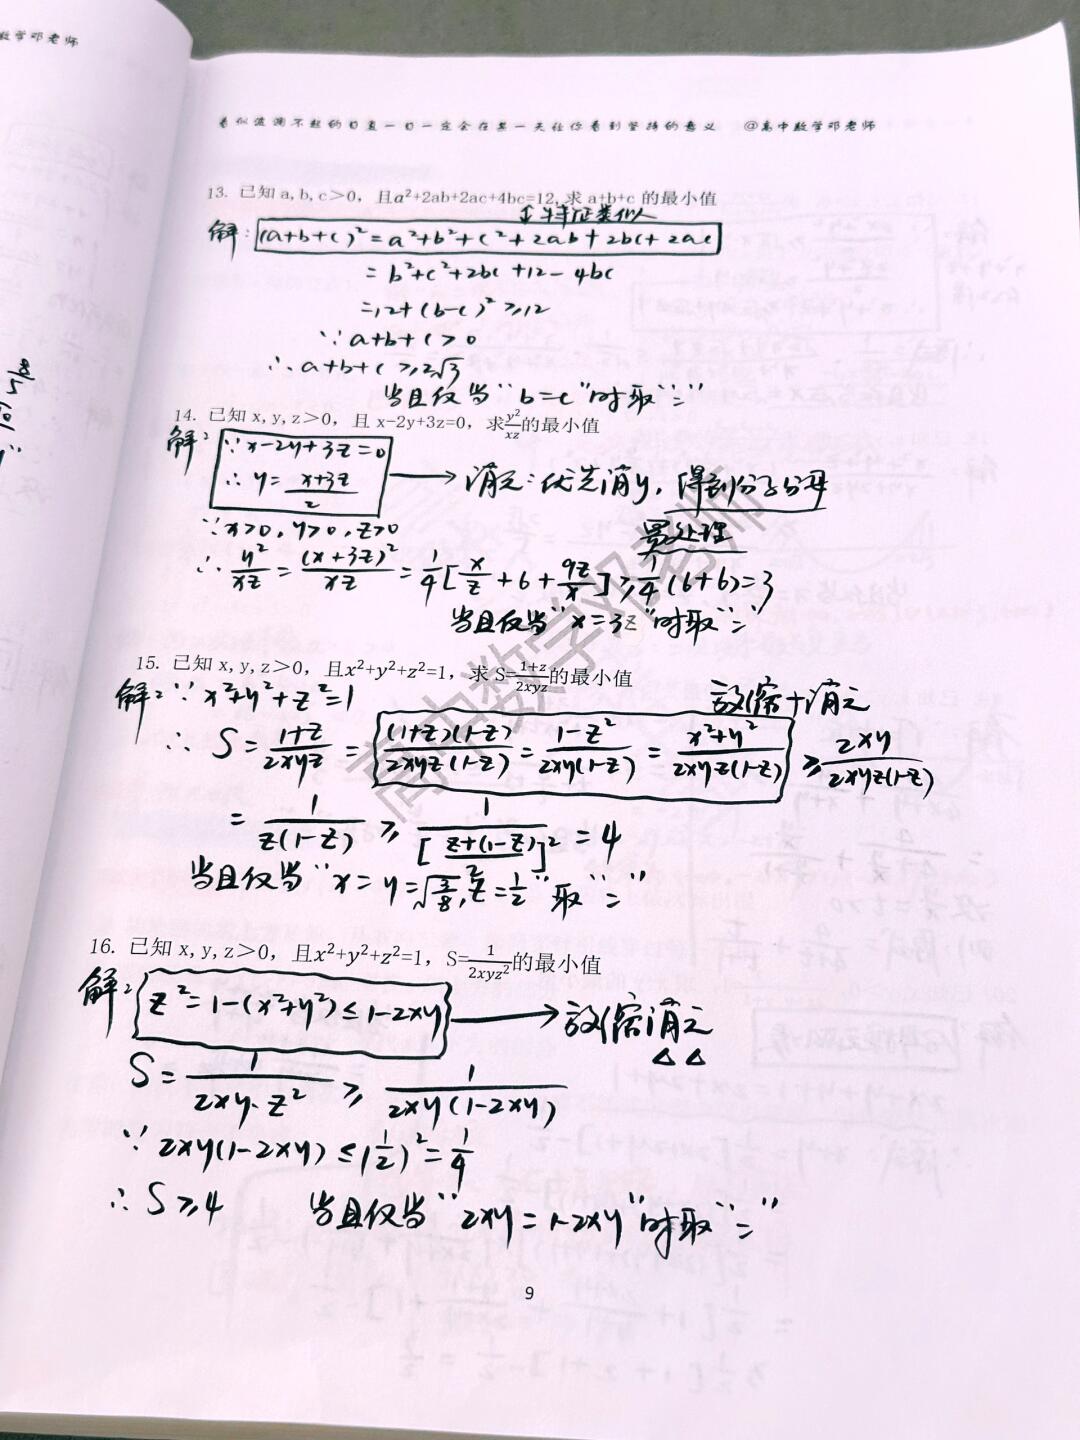 数学邓老师
看似波澜不起的日复一日一定会在某一天让你看到坚持的意义 @高中数学邓老师
13. 已知 a,b,c＞0，且a²+2ab+2ac+4bc=12,求 a+b+c 的最小值
与特征类似
解: (a+b+c)²=a²+b²+c²+2ab+2bc+2ac
=b²+c²+2bc+12-4bc
=12+(b-c)²≥12
∵a+b+c>0
∴a+b+c≥2√3
当且仅当“b=c”时取“=”
14. 已知 x,y,z＞0，且 x-2y+3z=0，求y²/xz的最小值
解: ∵x-2y+3z=0
∴y=(x+3z)/2 → 消元:优先消y，得到分子分母
∵x>0,y>0,z>0 累处理
∴y²/xz=(x+3z)²/xz=1/4[x/z+6+9z/x]≥1/4(6+6)=3
当且仅当“x=3z”时取“=”
15. 已知 x,y,z＞0，且x²+y²+z²=1，求 S=(1+z)/2xyz的最小值
解: ∵x²+y²+z²=1 放缩+消元
∴S=(1+z)/2xyz=(1+z)(1-z)/2xyz(1-z)=(1-z²)/2xy(1-z)=(x²+y²)/2xyz(1-z)≥2xy/2xyz(1-z)
=1/z(1-z)≥1/[(z+(1-z))/2]²=4
当且仅当“x=y=√(3/8),z=1/2”取“=”
16. 已知 x,y,z＞0，且x²+y²+z²=1，S=1/2xyz²的最小值
解: z²=1-(x²+y²)≤1-2xy → 放缩消元
S=1/2xy·z²≥1/2xy(1-2xy)
∵2xy(1-2xy)≤(1/2)²=1/4
∴S≥4 当且仅当“2xy=1-2xy”时取“=”
9